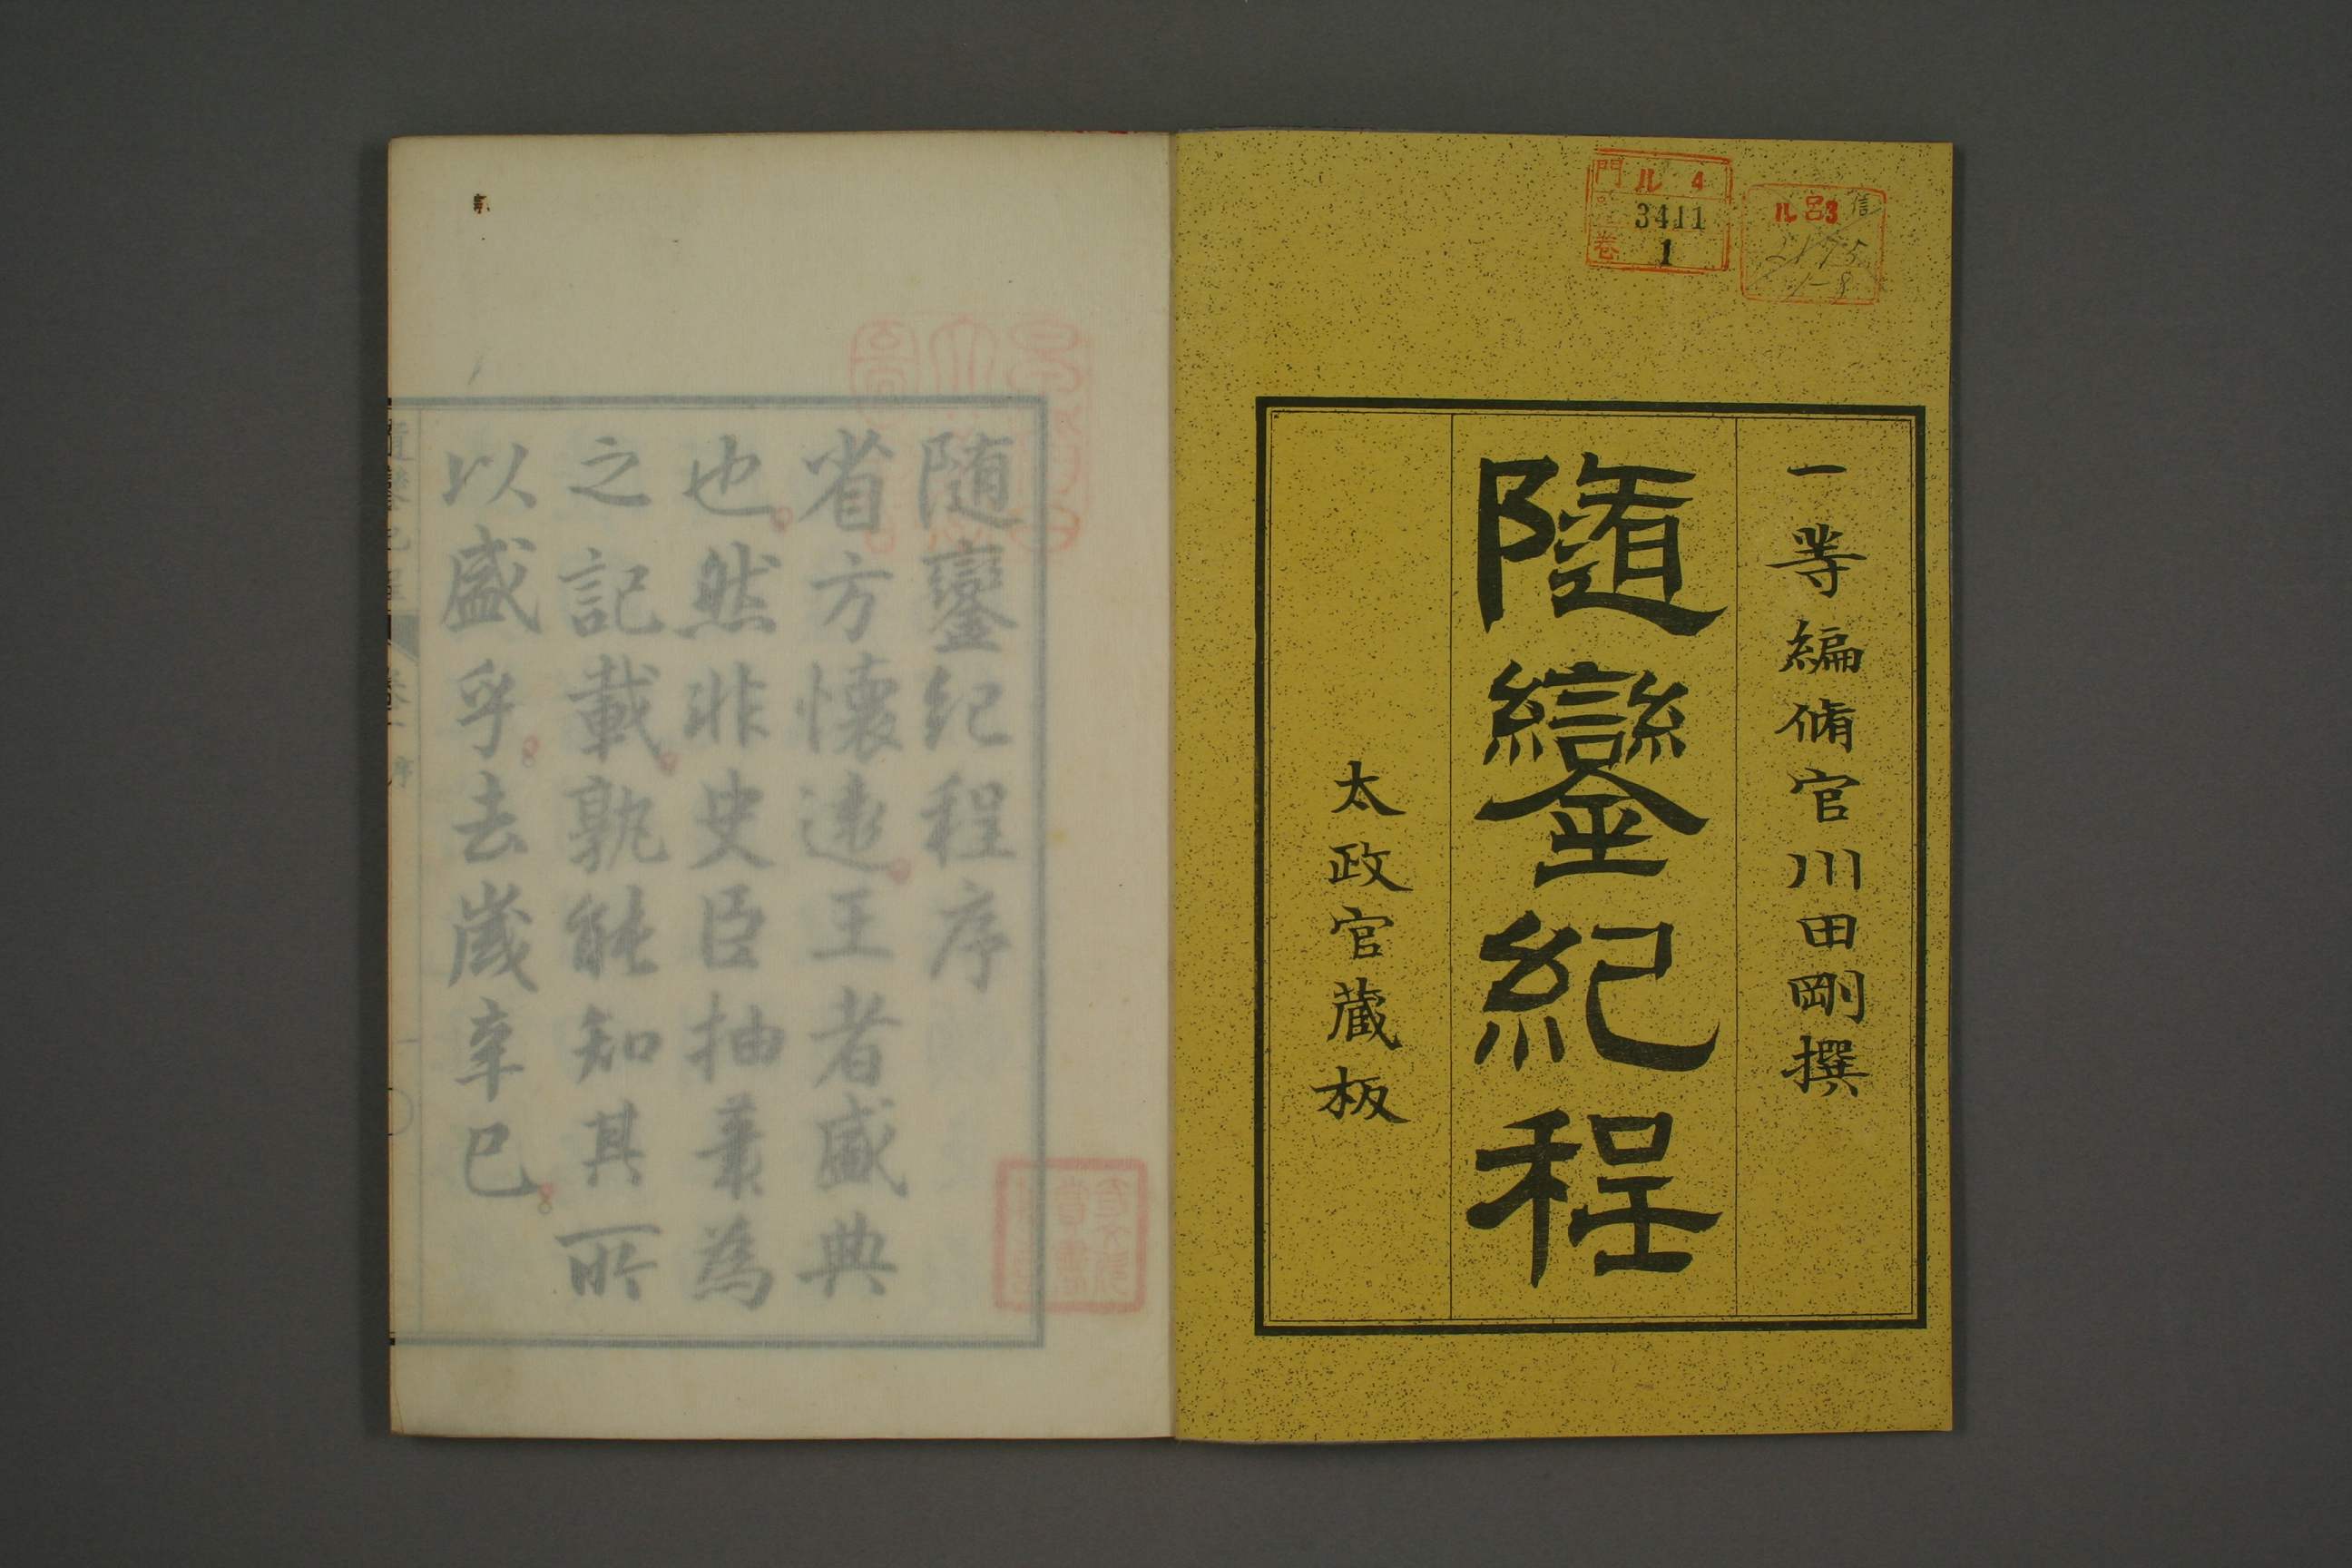 門 ル 4
號 3411
卷 1
ル 呂3 信
2175
1-8
一等編脩官川田剛撰
隨鑾紀程
太政官蔵板
随鑾紀程序
省方懷遠王者盛典
也然非史臣抽彙為
之記載孰能知其所
以盛乎去歲辛巳